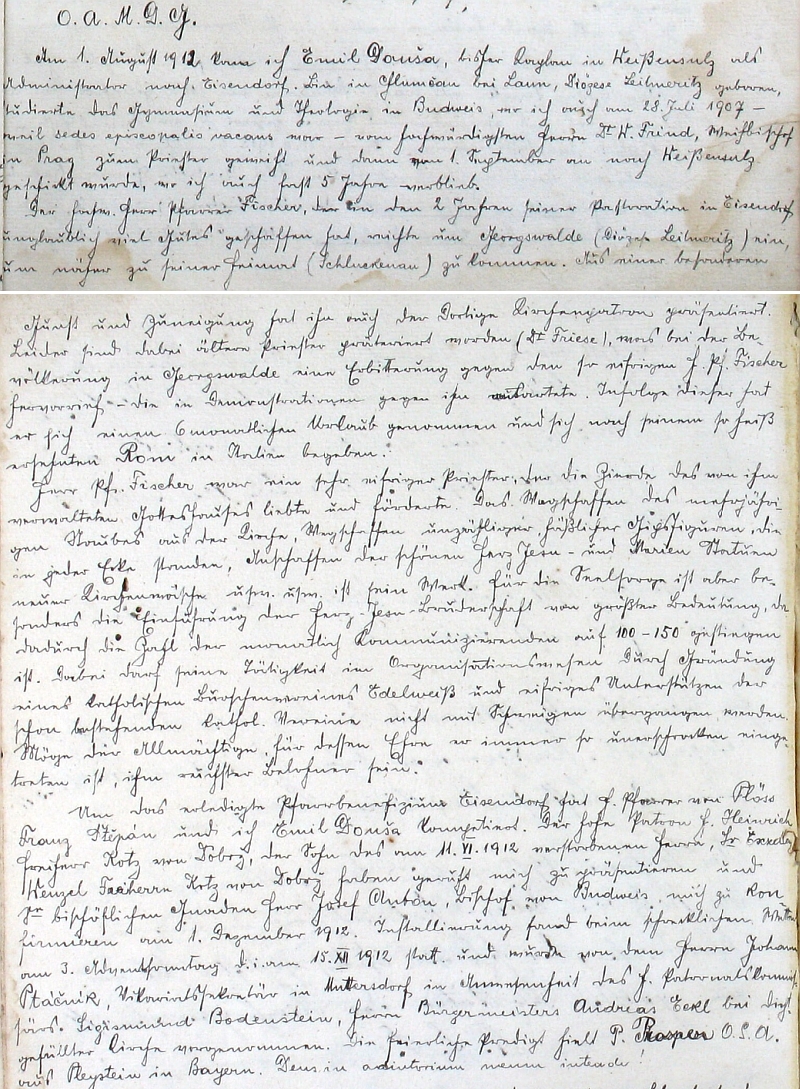 O. A. M. D. G.
Am 1. August 1912 kam ich Emil Douša, bisher Kaplan in Weißensulz als
Administrator nach Eisendorf. Bin in Chlumčan bei Laun, Diözese Leitmeritz geboren,
studierte das Gymnasium und Theologie in Budweis, wo ich auch am 28. Juli 1907 –
weil sedes episcopalis vacans war – vom hochwürdigsten Herrn Dr. W. Frind, Weihbischof
in Prag zum Priester geweiht und dann vom 1. September an nach Weißensulz
geschickt wurde, wo ich auch fast 5 Jahre verblieb.
Der hochw. Herr Pfarrer Fischer, der in den 2 Jahren seiner Pastoration in Eisendorf
unglaublich viel Gutes geschaffen hat, reichte um Georgswalde (Diözese Leitmeritz) ein,
um näher zu seiner Heimat (Schluckenau) zu kommen. Aus einer besonderen
Gunst und Zuneigung hat ihn auch der dortige Kirchenpatron präsentiert.
Leider sind dabei ältere Priester präteriert worden (Dr. Friese), was bei der Be-
völkerung in Georgswalde eine Erbitterung gegen den so eifrigen H. Pf. Fischer
hervorrief – die in Demonstrationen gegen ihn ausartete. Infolge dieser hat
er sich einen 6 monatlichen Urlaub genommen und sich nach seinem so heiß
ersehnten Rom in Italien begeben.
Herr Pfr. Fischer war ein sehr eifriger Priester, der die Zierde des von ihm
verwalteten Gotteshauses liebte und förderte. Das Wegschaffen des mehrjähri-
gen Staubes aus der Kirche, Wegschaffen unzähliger häßlicher Gipsfiguren, die
in jeder Ecke standen, Anschaffen der schönen Herz Jesu- und Marien Statuen
neuer Kirchenwäsche usw. usw. ist sein Werk. Für die Seelsorge ist aber be-
sonders die Einführung der Herz-Jesu-Bruderschaft von größter Bedeutung, da
dadurch die Zahl der monatlich Kommunizierenden auf 100–150 gestiegen
ist. Dabei darf seine Tätigkeit im Organisationswesen durch Gründung
eines katholischen Burschenvereines Edelweiß und eifriges Unterstützen der
schon bestehenden kathol. Vereine nicht mit Schweigen übergangen werden.
Möge der Allmächtige, für dessen Ehre er immer so unerschrocken einge-
treten ist, ihm reichster Belohner sein.
Um das erledigte Pfarrbenefizium Eisendorf hat H. Pfarrer von Plöss
Franz Štěpán und ich Emil Douša kompetiert. Der hohe Patron H. Heinrich
Freiherr Kotz von Dobrz, der Sohn des am 11. VI. 1912 verstorbenen Herrn, Sr. Exzellenz
Wenzel Freiherrn Kotz von Dobrz haben geruht mich zu präsentieren und
Se bischöflichen Gnaden Herr Josef Anton, Bischof von Budweis mich zu kon-
firmieren am 1. Dezember 1912. Installierung fand beim schrecklichen Wetter
am 3. Adventsonntag d. i. am 15. XII 1912 statt und wurde von dem Herrn Johann
Ptáčník, Vikariatssekretär in Muttersdorf in Anwesenheit des H. Patronatskommis-
särs Sigismund Bodenstein, Herrn Bürgermeisters Andreas Eckl bei dicht
gefüllter Kirche vorgenommen. Die feierliche Predigt hielt P. Prosper O.S.A.
aus Pleystein in Bayern. Deus in adiutorium meum intende!